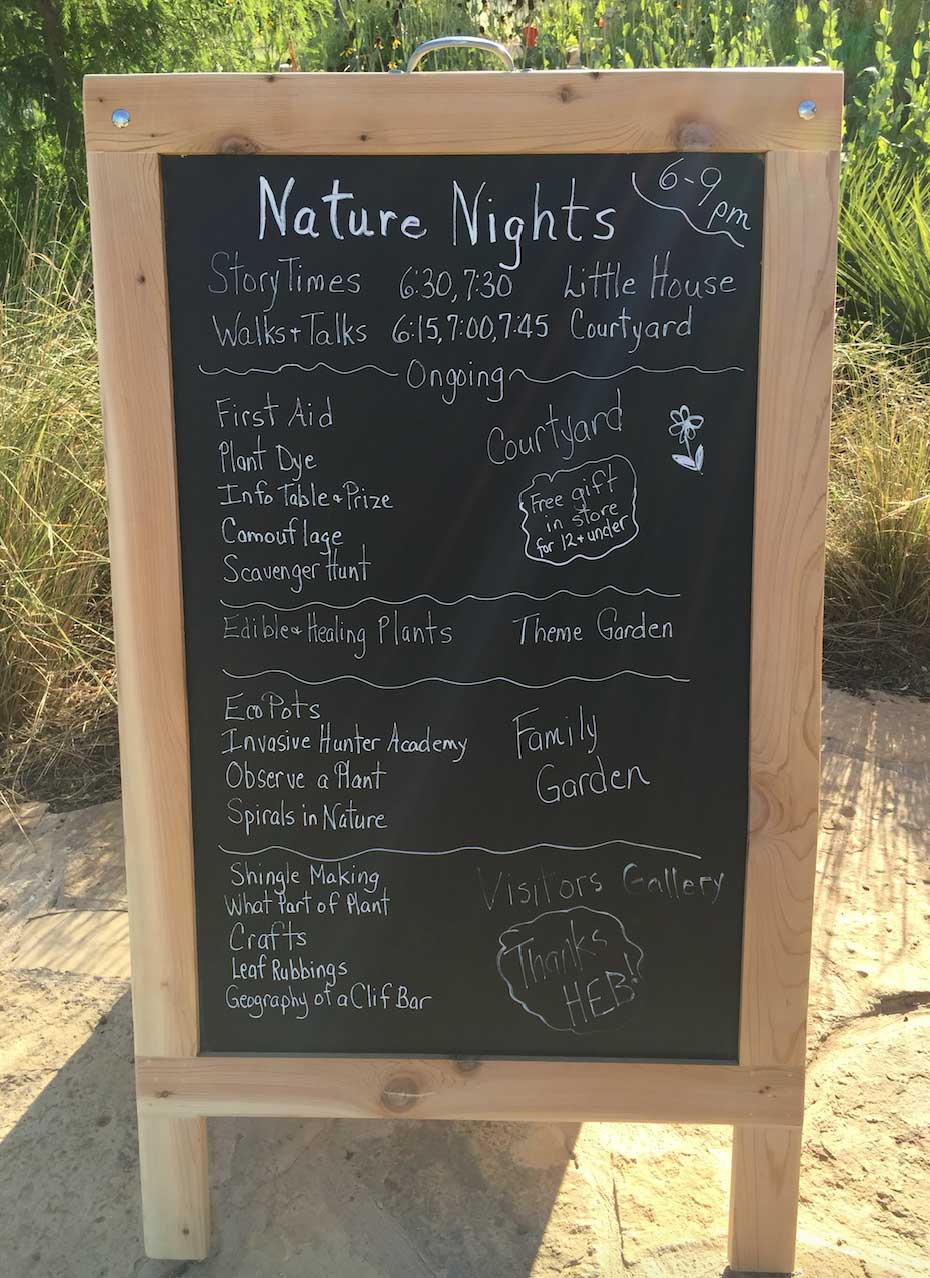 Nature Nights 6-9 pm
StoryTimes 6:30, 7:30 Little House
Walks + Talks 6:15, 7:00, 7:45 Courtyard
Ongoing
First Aid
Plant Dye
Info Table & Prize
Camouflage
Scavenger Hunt
Courtyard
Free gift
in store
for 12 + under
Edible & Healing Plants Theme Garden
EcoPots
Invasive Hunter Academy
Observe a Plant
Spirals in Nature
Family
Garden
Shingle Making
What Part of Plant
Crafts
Leaf Rubbings
Geography of a Clif Bar
Visitors Gallery
Thanks
HEB!